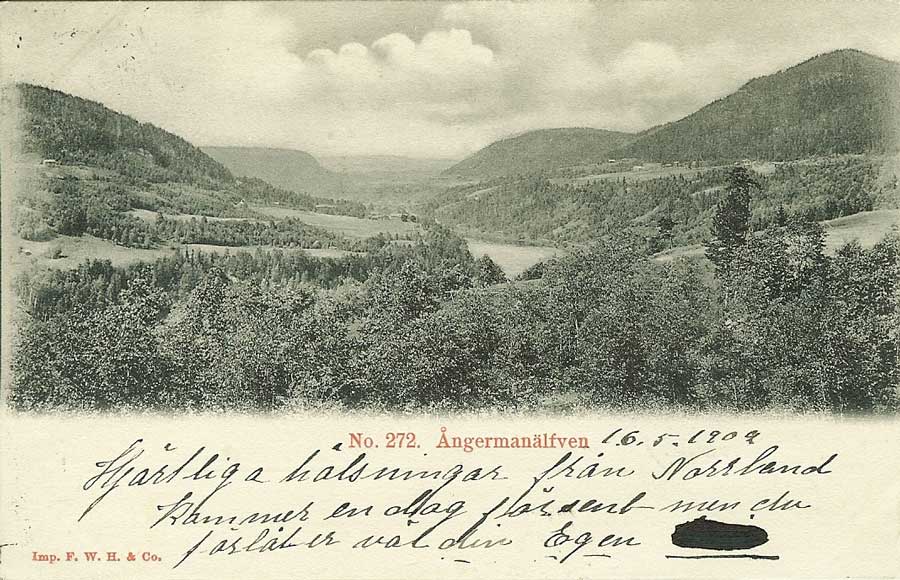 No. 272. Ångermanälfven 16.5.1902
Hjärtliga hälsningar från Norrland
Kommer en dag försent men du
förlåter väl din Egen
Imp. F. W. H. & Co.